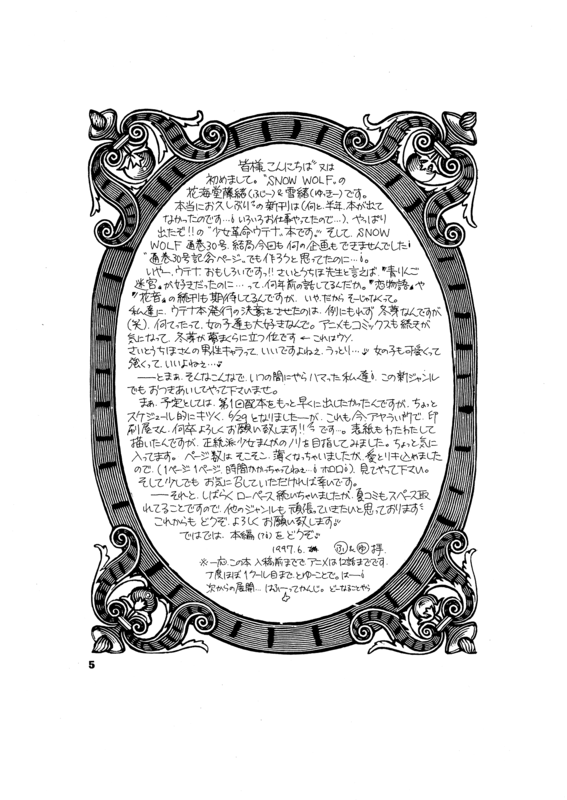 皆様こんにちは 又は
初めまして。“SNOW WOLF”の
花海堂藤緒(ふじー)&雪緒(ゆきー)です。
本当にお久しぶりの新刊は(何と、半年、本が出て
なかったのです…いろいろお仕事やってたので…)、やっぱり
出たぞ!!の“少女革命ウテナ”本です。そして、SNOW
WOLF 通巻30号、結局今回も何の企画もできませんでした
“通巻30号記念ページ”でも作ろうと思ってたのに…。
いやー、ウテナ、おもしろいですっ!! さいとうちほ先生と言えば、『青りんご
迷宮』が好きだったのに…って、何年前の話してるんだか。『恋物語』や
『花音』の続刊も期待してるんですが、いや、だから、そーじゃなくて。
私達に、ウテナ本発行の決意をさせたのは、例にもれず 冬芽なんですが
(笑)、何てったって、女の子達も大好きなんで。アニメもコミックスも続きが
気になって、冬芽が夢まくらに立つ位です ← これはウソ。
さいとうちほさんの男性キャラって、いいですよねェ、うっとり…。女の子も可愛くって
強くって、いいよねェ…
――とまぁ、そんなこんなで、いつの間にやらハマッた私達、この新ジャンル
でもおつきあいしてやって下さいませ。
まぁ、予定としては、第1回配本をもっと早くに出したかったんですが、ちょっと
スケジュール的にキツく、6/29となりました――が、これも今アヤういカンジで、印
刷屋さん、何卒よろしくお願い致します!!です…。表紙もわたわたして
描いたんですが、正統派少女まんがのノリを目指してみました。ちょっと気に
入ってます。ページ数は そこそこ、薄くなっちゃいましたが、愛とリキ込めました
ので、(1ページ1ページ、時間かかっちゃってねェ… ホロロ)、見てやって下さい。
そして少しでも お気に召していただければ幸いです。
――それと、しばらくローペース続いちゃいましたが、夏コミもスペース取
れてることですので、他のジャンルも頑張っていきたいと思っております
これからも どうぞ、よろしくお願い致します
ではでは、本編(?)をどうぞ
1997.6. ふ&ゆ 拝
※一応、この本 入稿前までで アニメは12話までです。
丁度ほぼ1クール目までとゆーことで。はー
次からの展開… はふーってかんじ。どーなることやら
5